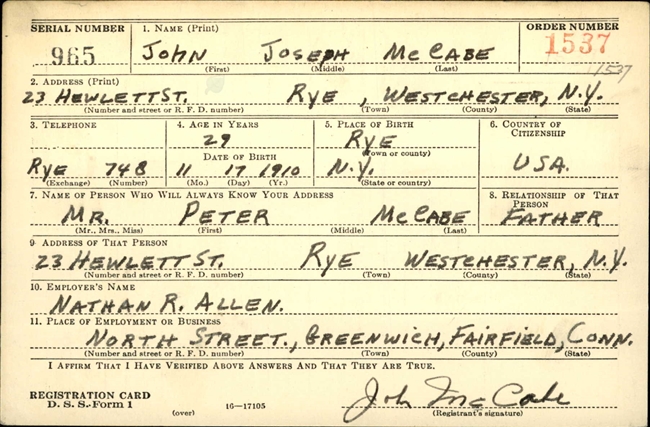 SERIAL NUMBER 1. NAME (Print) ORDER NUMBER
965 JOHN JOSEPH MCCABE 1537
(First) (Middle) (Last) 1537
2. ADDRESS (Print)
23 HEWLETT ST. RYE, WESTCHESTER, N.Y.
(Number and street or R. F. D. number) (Town) (County) (State)
3. TELEPHONE 4. AGE IN YEARS 5. PLACE OF BIRTH 6. COUNTRY OF CITIZENSHIP
29 RYE
DATE OF BIRTH (Town or county) USA.
RYE 748 11 17 1910 N.Y.
(Exchange) (Number) (Mo.) (Day) (Yr.) (State or country)
7. NAME OF PERSON WHO WILL ALWAYS KNOW YOUR ADDRESS 8. RELATIONSHIP OF THAT PERSON
MR. PETER MCCABE FATHER
(Mr., Mrs., Miss) (First) (Middle) (Last)
9. ADDRESS OF THAT PERSON
23 HEWLETT ST. RYE WESTCHESTER, N.Y.
(Number and street or R. F. D. number) (Town) (County) (State)
10. EMPLOYER'S NAME
NATHAN R. ALLEN.
11. PLACE OF EMPLOYMENT OR BUSINESS
NORTH STREET., GREENWICH, FAIRFIELD, CONN.
(Number and street or R. F. D. number) (Town) (County) (State)
I AFFIRM THAT I HAVE VERIFIED ABOVE ANSWERS AND THAT THEY ARE TRUE.
REGISTRATION CARD John McCabe
D. S. S. Form 1 (over) 16—17105 (Registrant's signature)